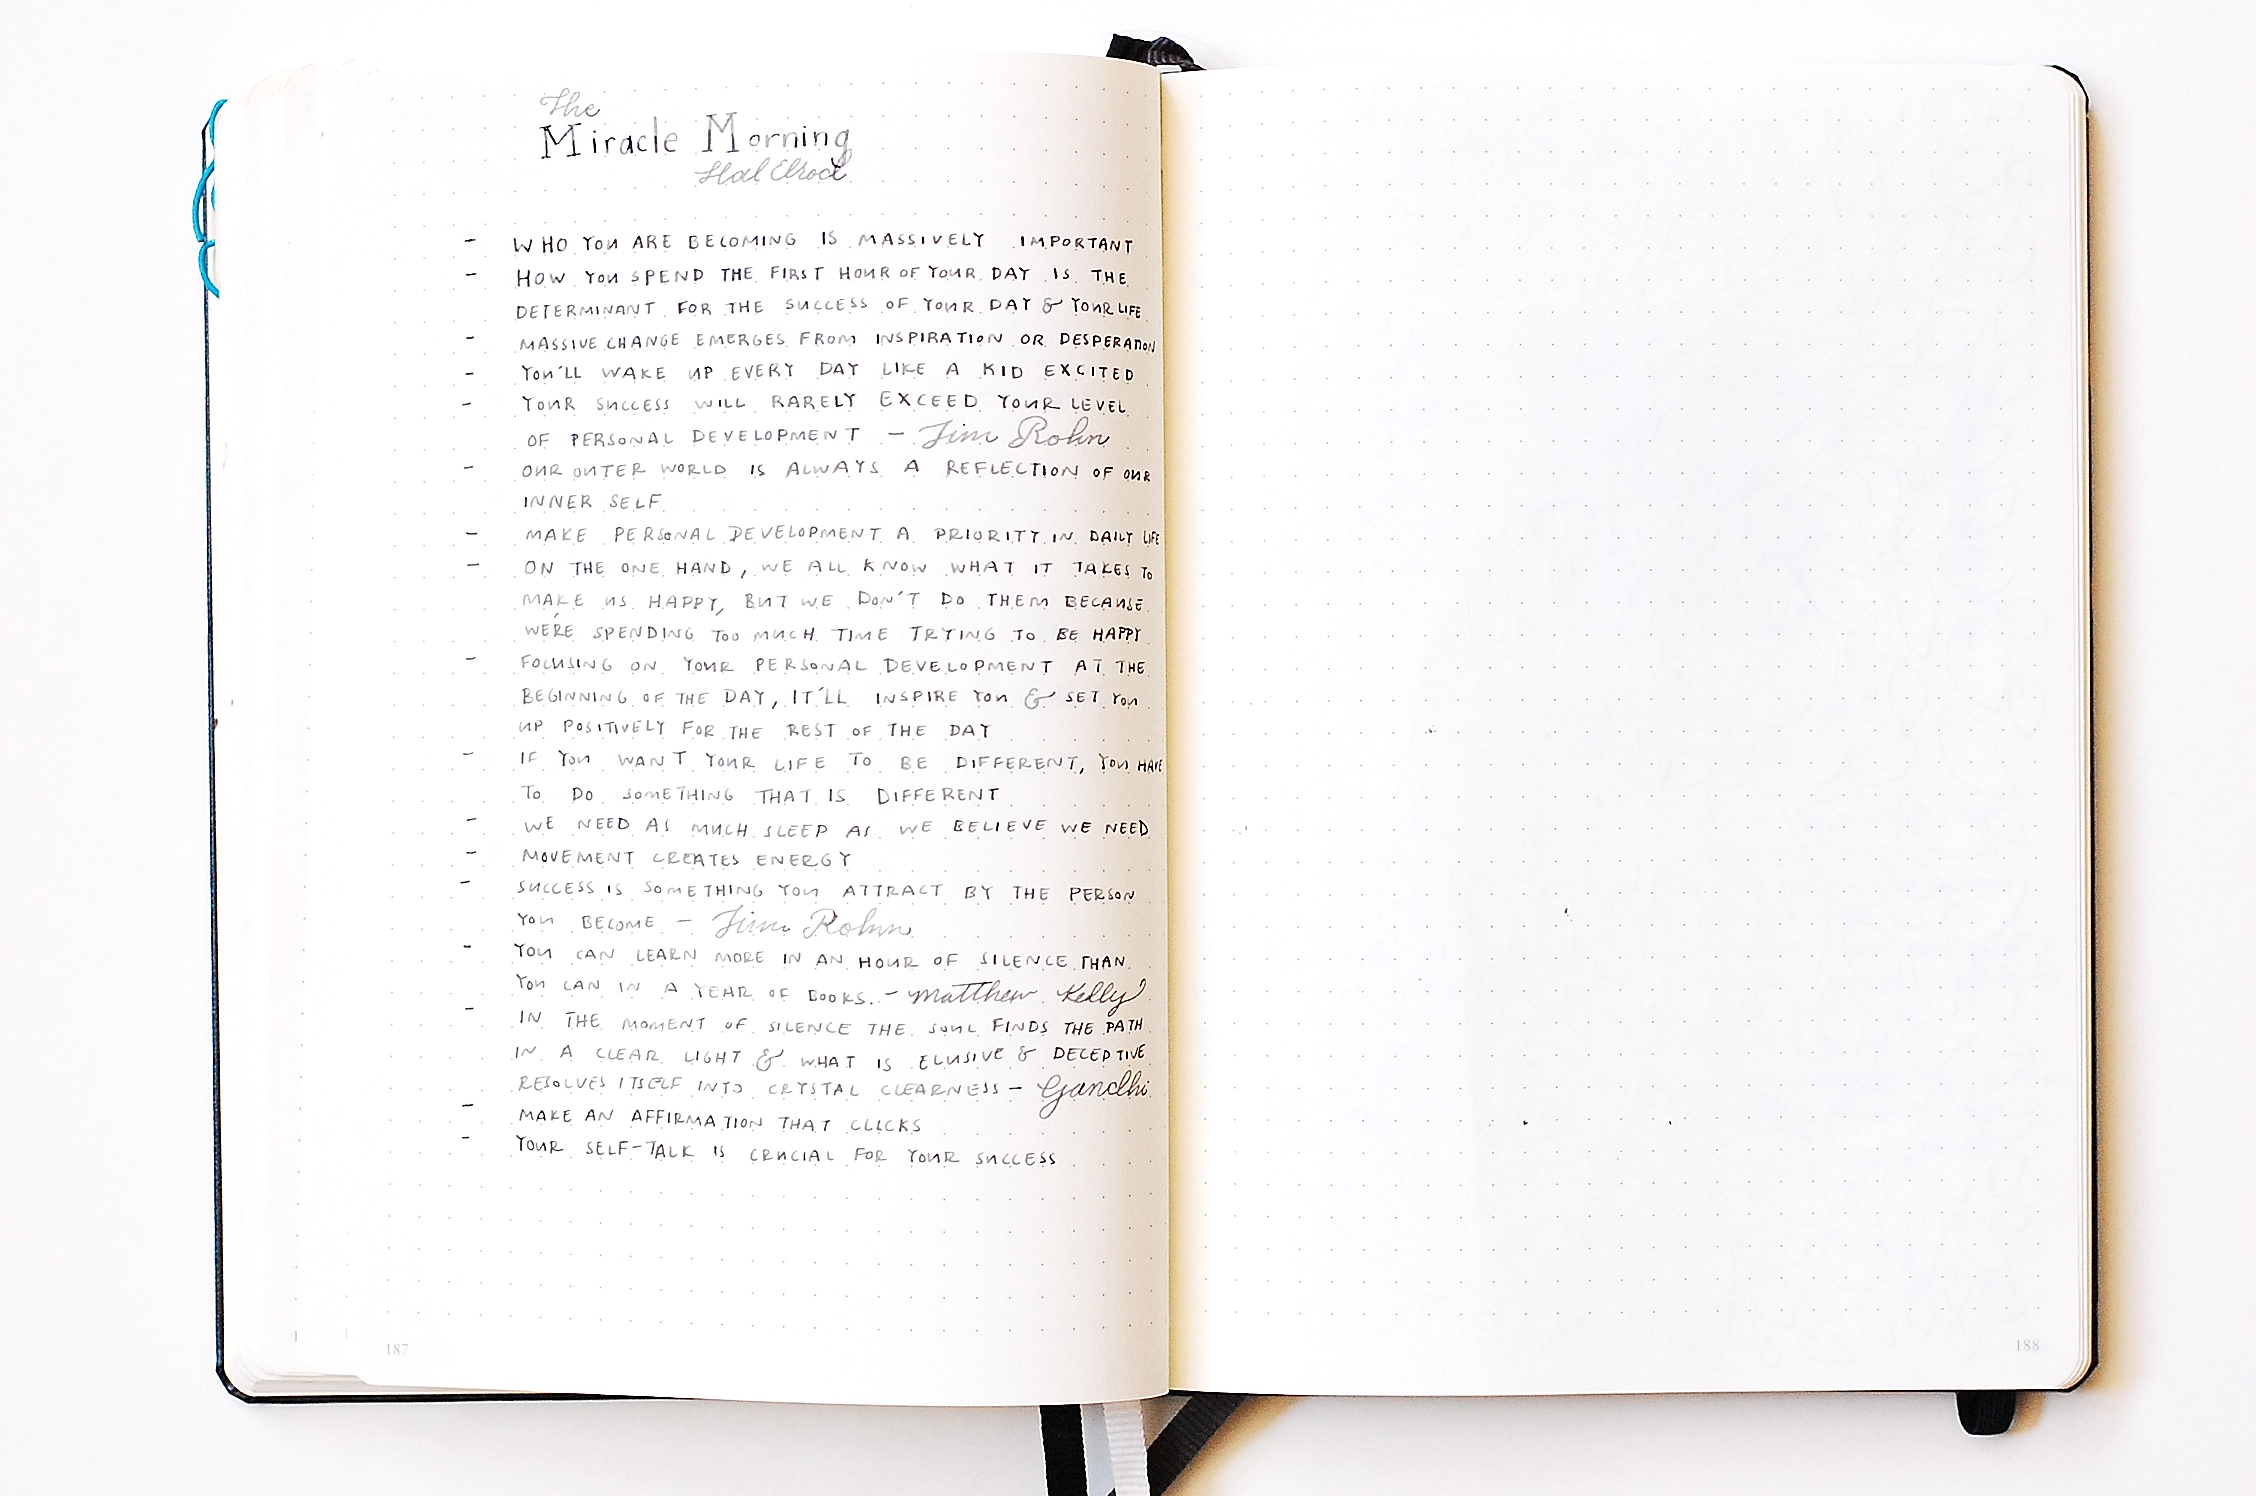 The
Miracle Morning
Hal Elrod
- WHO YOU ARE BECOMING IS MASSIVELY IMPORTANT
- HOW YOU SPEND THE FIRST HOUR OF YOUR DAY IS THE
DETERMINANT FOR THE SUCCESS OF YOUR DAY & YOUR LIFE
- MASSIVE CHANGE EMERGES FROM INSPIRATION OR DESPERATION
- YOU'LL WAKE UP EVERY DAY LIKE A KID EXCITED
- YOUR SUCCESS WILL RARELY EXCEED YOUR LEVEL
OF PERSONAL DEVELOPMENT - Jim Rohn
- OUR OUTER WORLD IS ALWAYS A REFLECTION OF OUR
INNER SELF
- MAKE PERSONAL DEVELOPMENT A PRIORITY IN DAILY LIFE
- ON THE ONE HAND, WE ALL KNOW WHAT IT TAKES TO
MAKE US HAPPY, BUT WE DON'T DO THEM BECAUSE
WE'RE SPENDING TOO MUCH TIME TRYING TO BE HAPPY
- FOCUSING ON YOUR PERSONAL DEVELOPMENT AT THE
BEGINNING OF THE DAY, IT'LL INSPIRE YOU & SET YOU
UP POSITIVELY FOR THE REST OF THE DAY
- IF YOU WANT YOUR LIFE TO BE DIFFERENT, YOU HAVE
TO DO SOMETHING THAT IS DIFFERENT
- WE NEED AS MUCH SLEEP AS WE BELIEVE WE NEED
- MOVEMENT CREATES ENERGY
- SUCCESS IS SOMETHING YOU ATTRACT BY THE PERSON
YOU BECOME - Jim Rohn
- YOU CAN LEARN MORE IN AN HOUR OF SILENCE THAN
YOU CAN IN A YEAR OF BOOKS. - Matthew Kelly
- IN THE MOMENT OF SILENCE THE SOUL FINDS THE PATH
IN A CLEAR LIGHT & WHAT IS ELUSIVE & DECEPTIVE
RESOLVES ITSELF INTO CRYSTAL CLEARNESS - Gandhi
- MAKE AN AFFIRMATION THAT CLICKS
- YOUR SELF-TALK IS CRUCIAL FOR YOUR SUCCESS
187
188